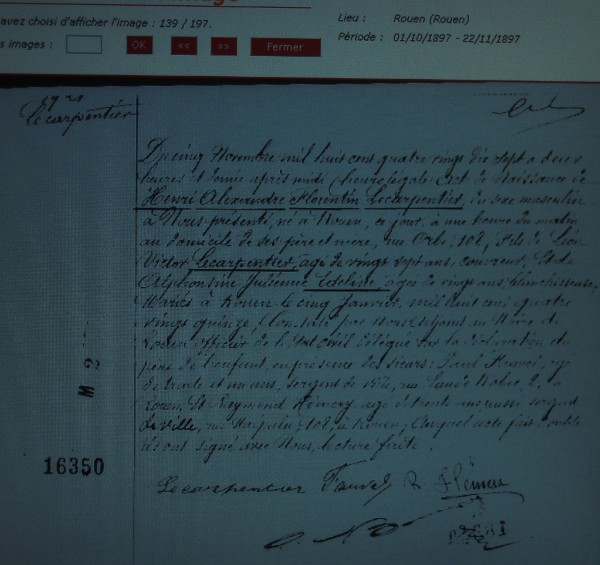 avez choisi d'afficher l'image : 139 / 197.
s images :
OK
<<
>>
Fermer
Lieu : Rouen (Rouen)
Période : 01/10/1897 - 22/11/1897
Lecarpentier
Du cinq Novembre mil huit cent quatre vingt dix sept a deux
heures et demie après midi (heure légale) Acte de Naissance de
Henri Alexandre Florentin Lecarpentier, du sexe masculin
à Nous présenté, né à Rouen, ce jour, à une heure du matin
au domicile de ses père et mère, rue Orbe, 108, Fils de Léon
Victor Lecarpentier, agé de vingt sept ans, couvreur, Et de
Alphonsine Julienne Edeline, agée de vingt ans, blanchisseuse,
Mariés à Rouen le cinq Janvier, mil huit cent quatre
vingt quinze, Constaté par Nous Adjoint au Maire de
Rouen officier de l'Etat Civil délégué sur la déclaration du
père de l'enfant, en présence des sieurs: Paul
de trente et un ans, sergent de ville, rue 2, à
Rouen, Et Raymond Hémery, agé de trente ans, aussi sergent
de ville, rue 108, à Rouen, Auquel acte fait double
ils ont signé avec Nous, lecture faite.
M 2
16350
Lecarpentier R Hémery